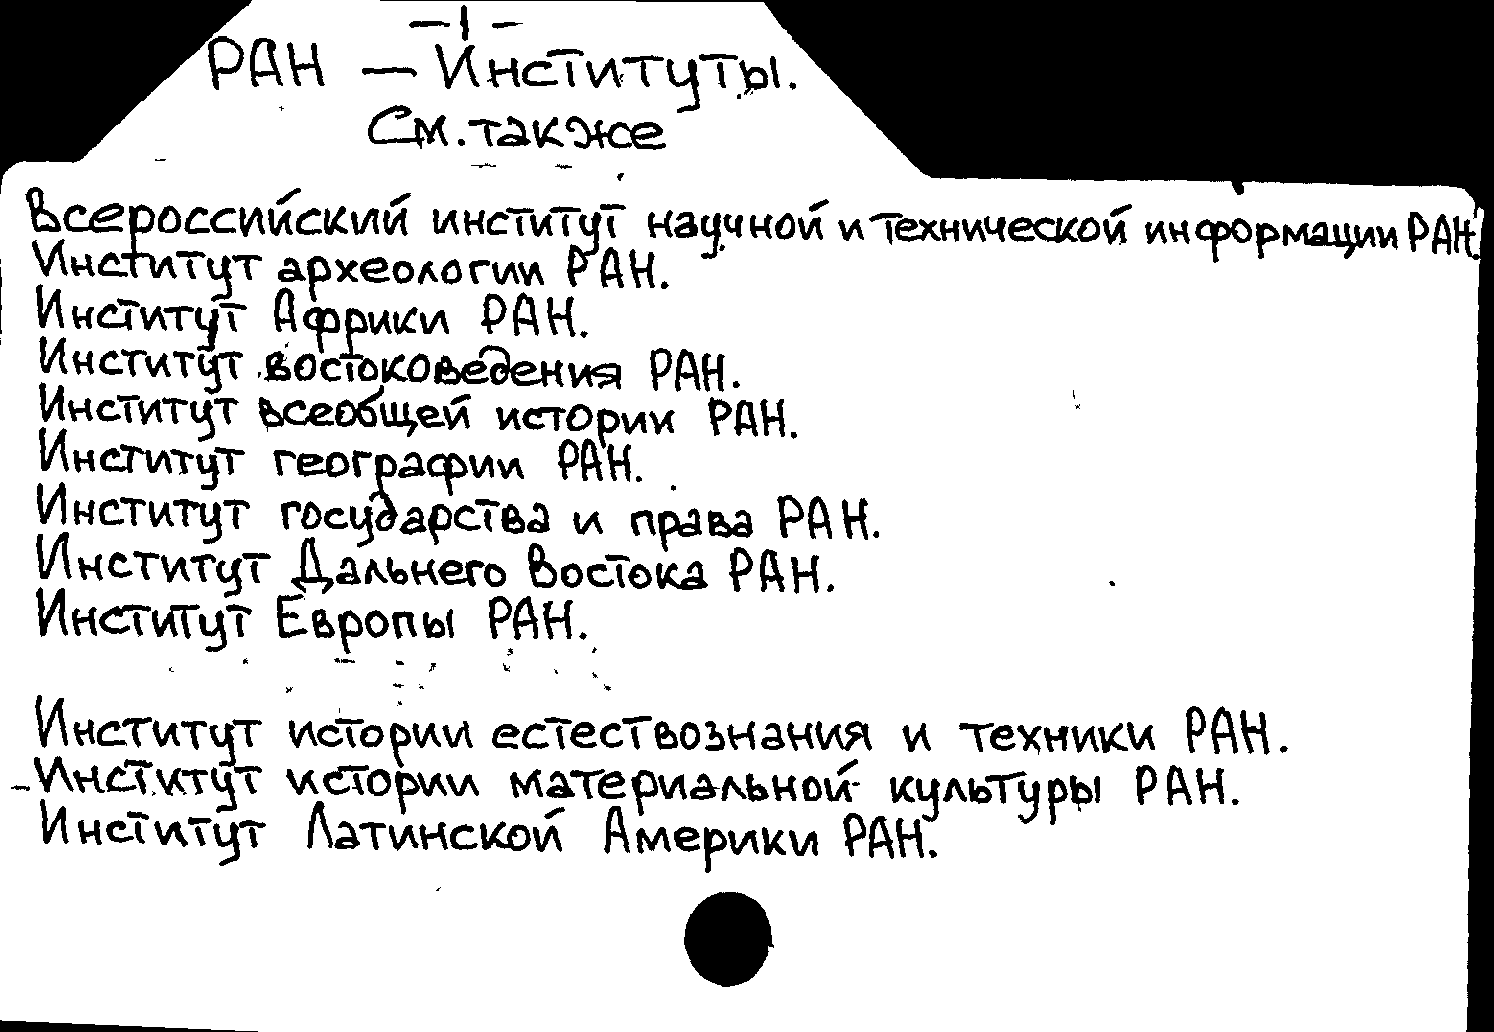 -1-
РАН — Институты.
См. также
Всероссийский институт научной и технической информации РАН.
Институт археологии РАН.
Институт Африки РАН.
Институт востоковедения РАН.
Институт всеобщей истории РАН.
Институт географии РАН.
Институт государства и права РАН.
Институт Дальнего Востока РАН.
Институт Европы РАН.
Институт истории естествознания и техники РАН.
Институт истории материальной культуры РАН.
Институт Латинской Америки РАН.